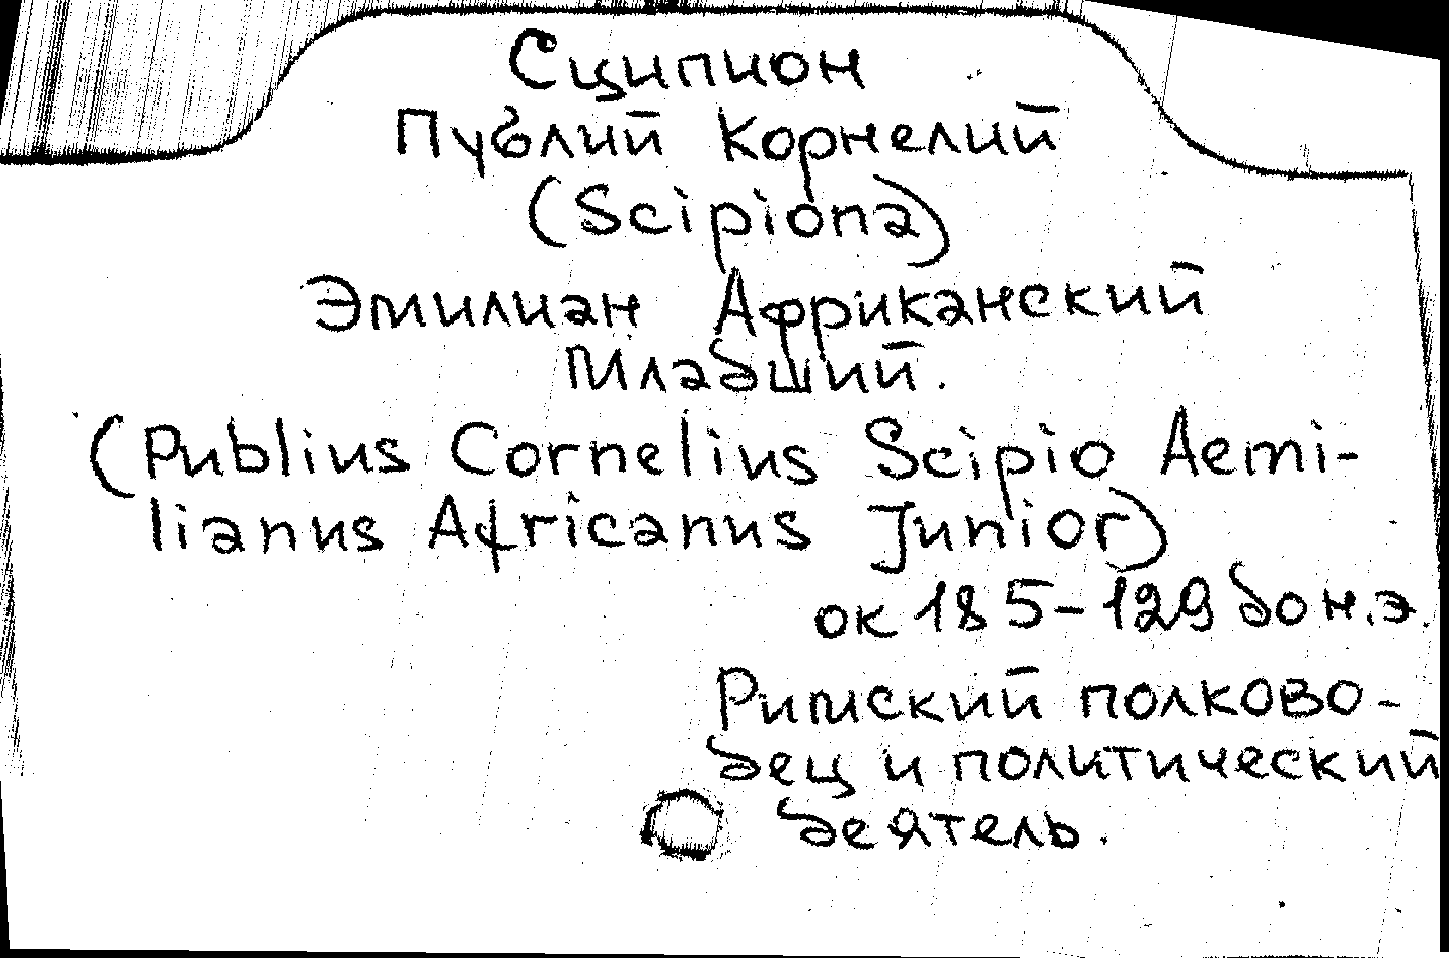 Сципион
Публий Корнелий
(Scipiona)
Эмилиан Африканский
Младший.
(Publius Cornelius Scipio Aemi-
lianus Africanus Junior)
ок 185-129 до н.э.
Римский полково-
дец и политический
деятель.